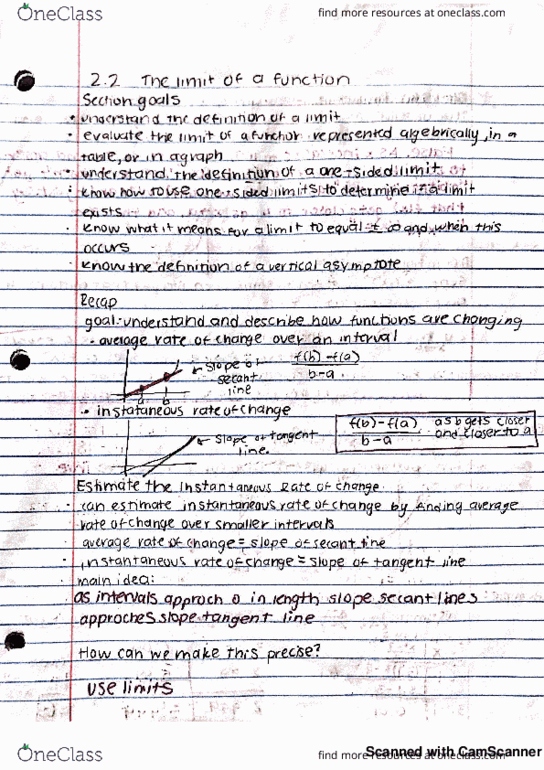 OneClass
find more resources at oneclass.com
2.2 The limit of a function
Section goals
• understand the definition of a limit
• evaluate the limit of a function represented algebraically, in a
table, or in a graph
• understand the definition of a one-sided limit
• know how to use one-sided limits to determine if a limit
exists
• know what it means for a limit to equal ± ∞ and when this
occurs
• know the definition of a vertical asymptote
Recap
goal: understand and describe how functions are changing
- average rate of change over an interval
slope of
secant
line
f(b)-f(a)
b-a
a b
• instataneous rate of change
slope of tangent
line.
f(b)-f(a)
b-a
as b gets closer
and closer to a
Estimate the Instantaneous Rate of change
• can estimate instantaneous rate of change by finding average
rate of change over smaller intervals
• average rate of change = slope of secant line
• instantaneous rate of change = slope of tangent line
• main idea:
as intervals approch 0 in length slope secant lines
approches slope tangent line
How can we make this precise?
use limits
OneClass
find more resources at oneclass.com
Scanned with CamScanner